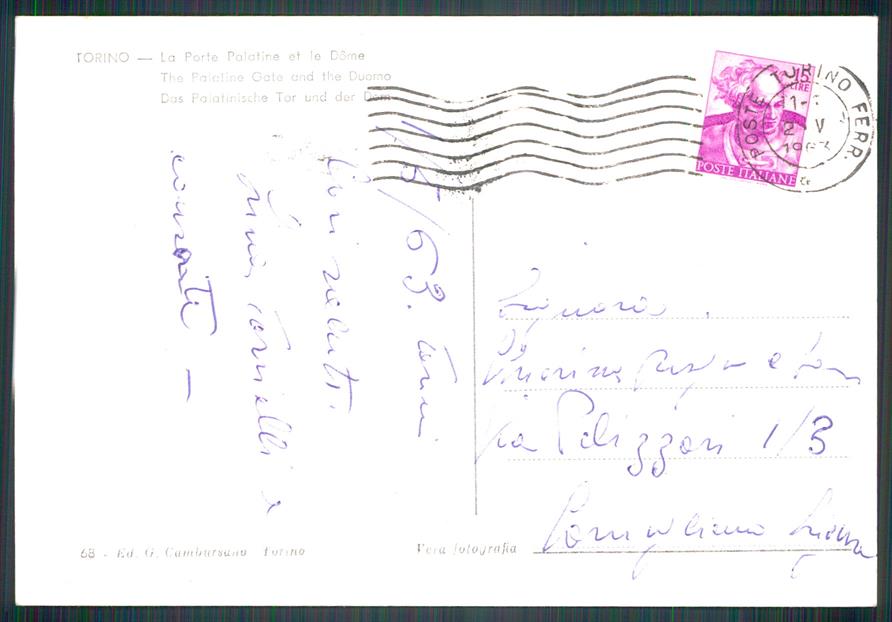 TORINO — La Porte Palatine et le Dôme
The Palatine Gate and the Duomo
Das Palatinische Tor und der Dom
15
LIRE
POSTE ITALIANE
POSTE TORINO FERR.
2 V
1963
1/5/63.
saluti.
e
consorte —
Signora
Via Pelizzari 1/3
Cornigliano Ligure
68 - Ed. G. Cambursano Torino
Vera fotografia